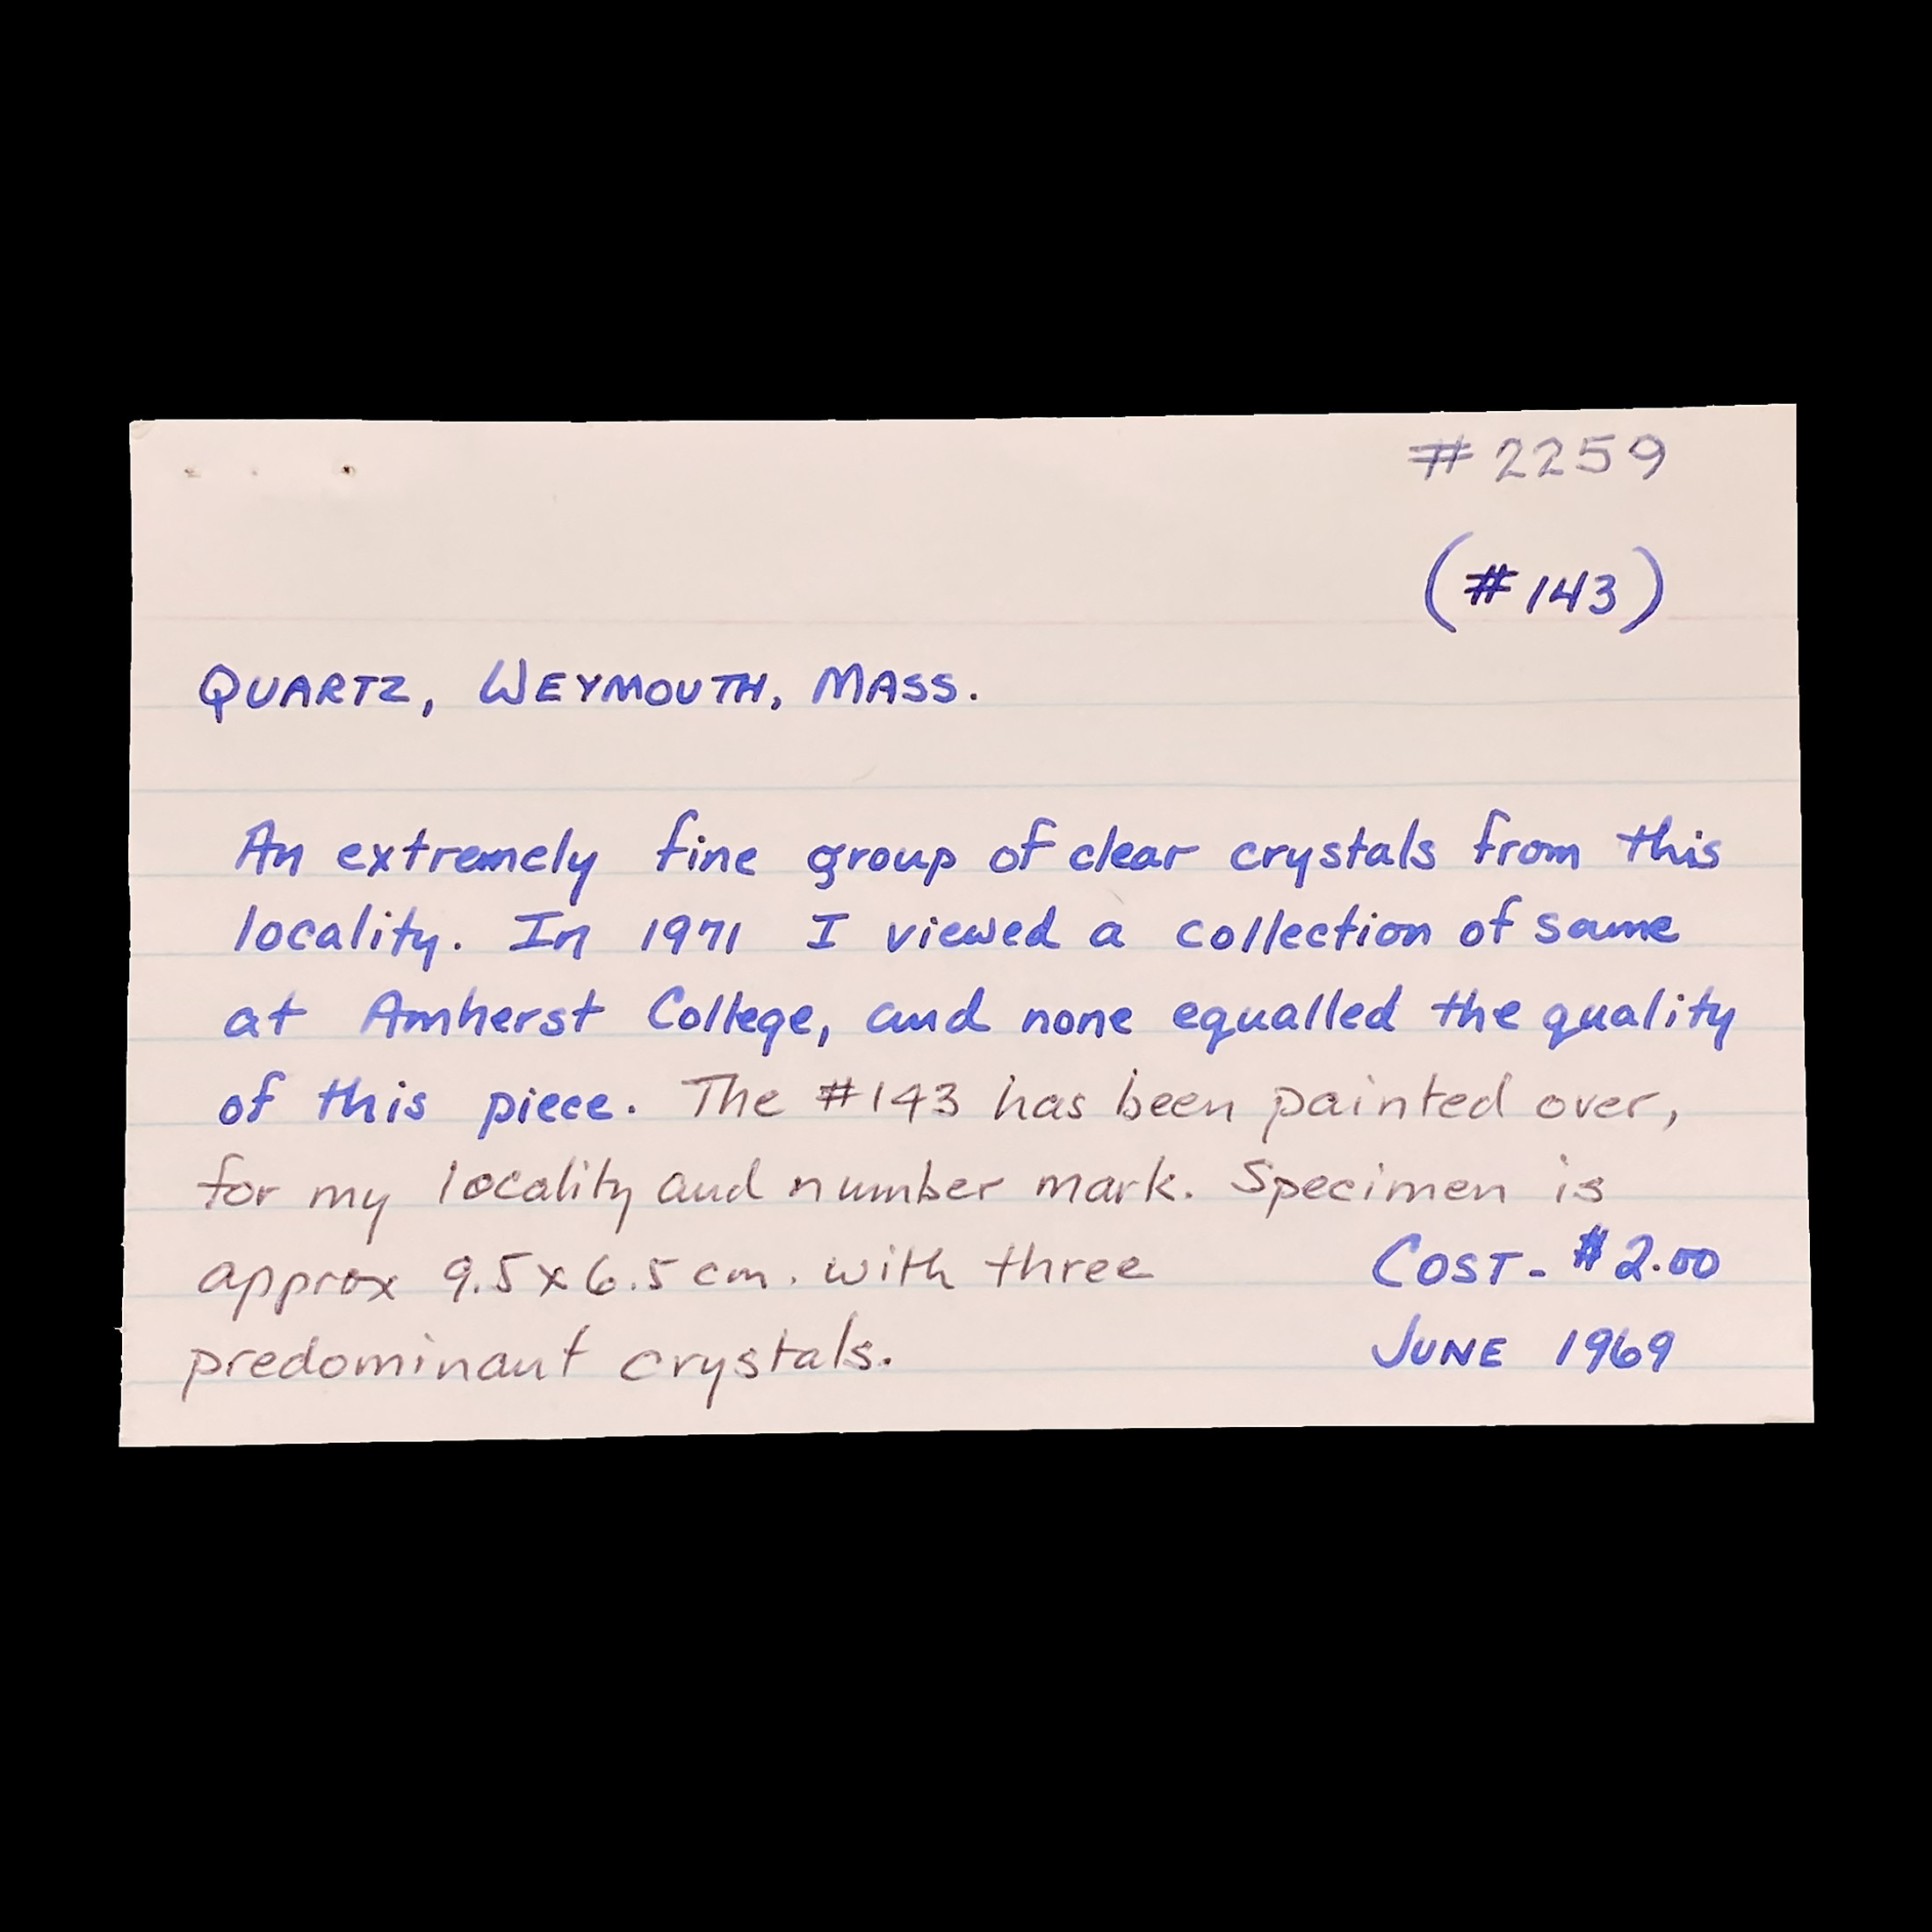 #2259
(#143)
QUARTZ, WEYMOUTH, MASS.
An extremely fine group of clear crystals from this
locality. In 1971 I viewed a collection of same
at Amherst College, and none equalled the quality
of this piece. The #143 has been painted over,
for my locality and number mark. Specimen is
approx 9.5x6.5 cm. with three
predominant crystals.
COST - $2.00
JUNE 1969